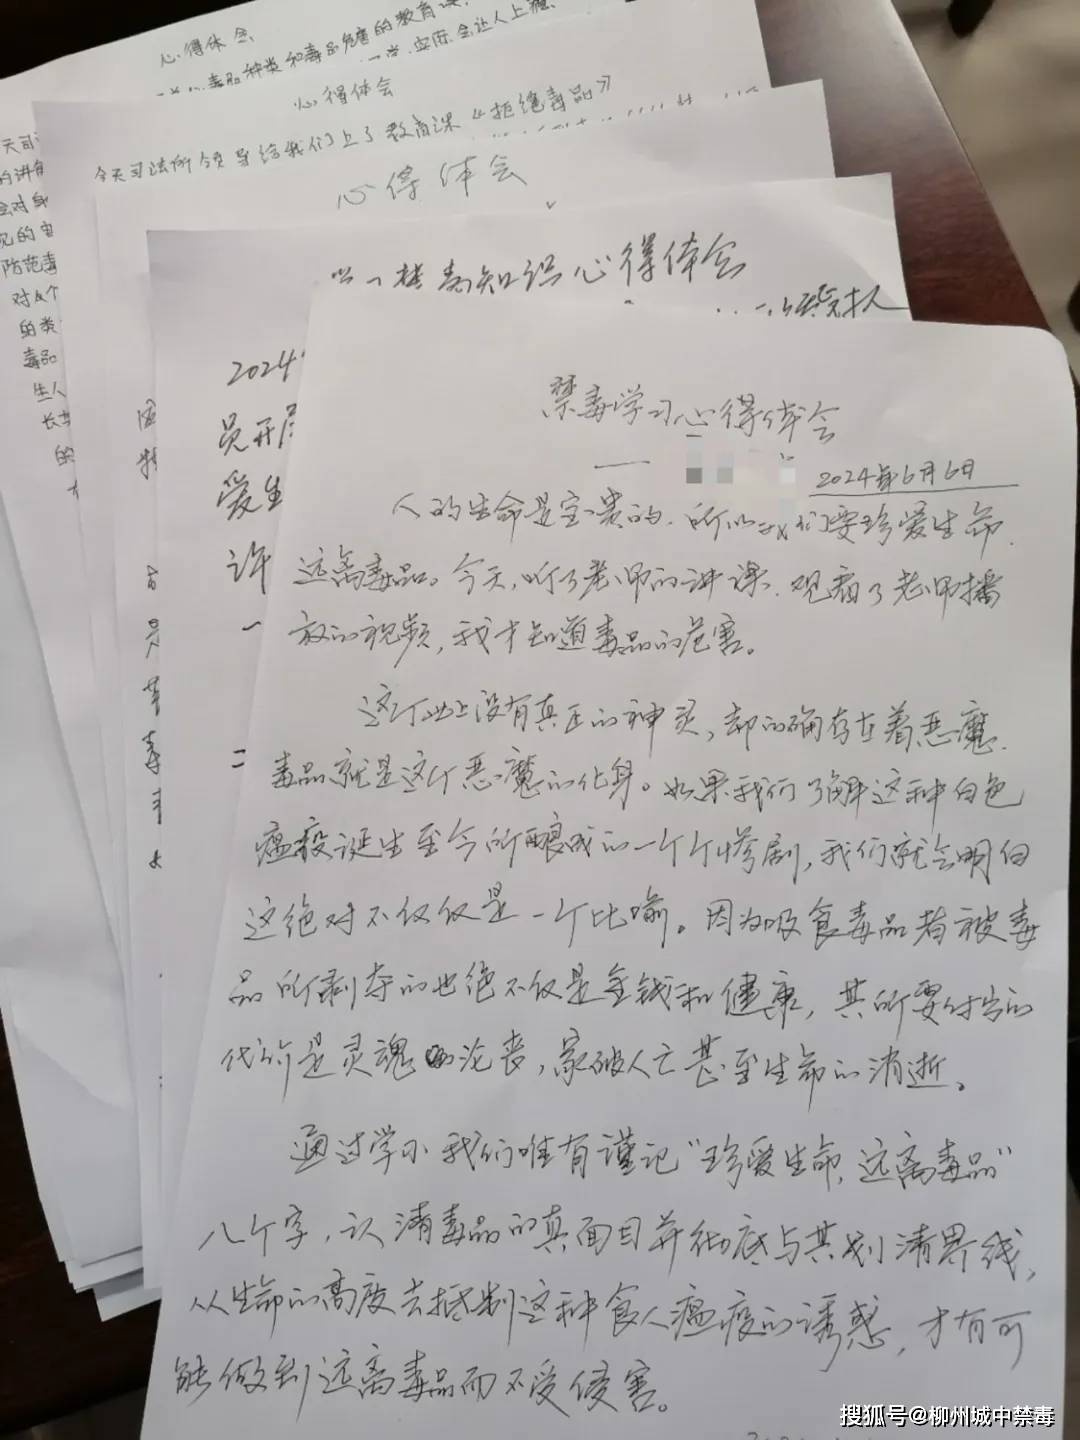 心得体会
毒品种类和毒品危害的教育课
会让人上瘾
心得体会
今天司法所领导给我们上了教育课《拒绝毒品》
心得体会
毒知识心得体会
天司
的讲解
会对身
见的
防范毒
对
的类
毒品
生人
的
2024
员开展
爱生
许
一
二
禁毒学习心得体会
2024年6月6日
人的生命是宝贵的,所以我们要珍爱生命,
远离毒品。今天,听了老师的讲课,观看了老师播
放的视频,我才知道毒品的危害。
这个世上没有真正的神灵,却的确存在着恶魔,
毒品就是这个恶魔的化身。如果我们了解这种白色
瘟疫诞生至今所酿成的一个个惨剧,我们就会明白
这绝对不仅仅是一个比喻。因为吸食毒品者被毒
品所剥夺的也绝不仅是金钱和健康,其所要付出的
代价是灵魂的沦丧,家破人亡甚至生命的消逝。
通过学习我们唯有谨记“珍爱生命,远离毒品”
八个字,认清毒品的真面目并彻底与其划清界线,
从生命的高度去抵制这种食人瘟疫的诱惑,才有可
能做到远离毒品而不受侵害。
搜狐号@柳州城中禁毒